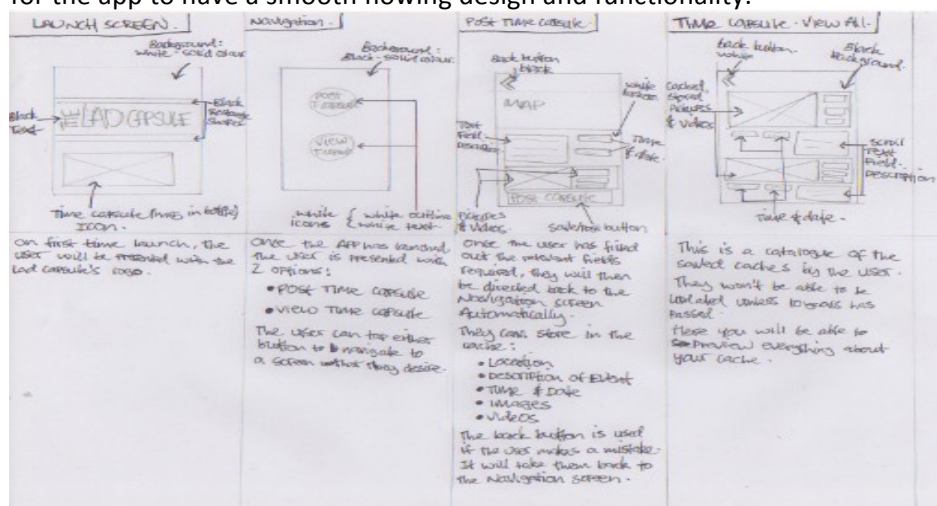 for the app to have a smooth flowing design and functionality.
LAUNCH SCREEN.
Background:
white - solid colour
Black
Text
Black
Rectangle
Shapes
LAD CAPSULE
Time capsule (mess in bottle)
Icon.
On first time launch, the
user will be presented with the
Lad capsule's logo.
Navigation.
Background:
Black - solid colour.
POST
T capsule
VIEW
T capsule
white
icons
{ white outline
{ white text.
Once the APP has launched,
the user is presented with
2 options:
• POST TIME capsule
• VIEW TIME capsule
The user can tap either
button to navigate to
a screen they desire.
POST TIME capsule
Back button
black
MAP
white
Text
Field
Description
Time
& date.
POST CAPSULE
Pictures
& Videos.
button
Once the user has filled
out the relevant fields
required, they will then
be directed back to the
Navigation screen
Automatically.
They can store in the
cache:
• Location
• Description of Event
• Time & Date
• Images
• Videos
The back button is used
if the user makes a mistake.
It will take them back to
the Navigation screen.
TIME capsule - VIEW All.
Back button -
white
Black
background.
Cached,
stored
Pictures
& Videos
Scroll
Text
Field -
Description
Time & date -
This is a catalogue of the
saved caches by the user.
They won't be able to be
unless 10 years has
passed.
Here you will be able to
preview everything about
your cache.